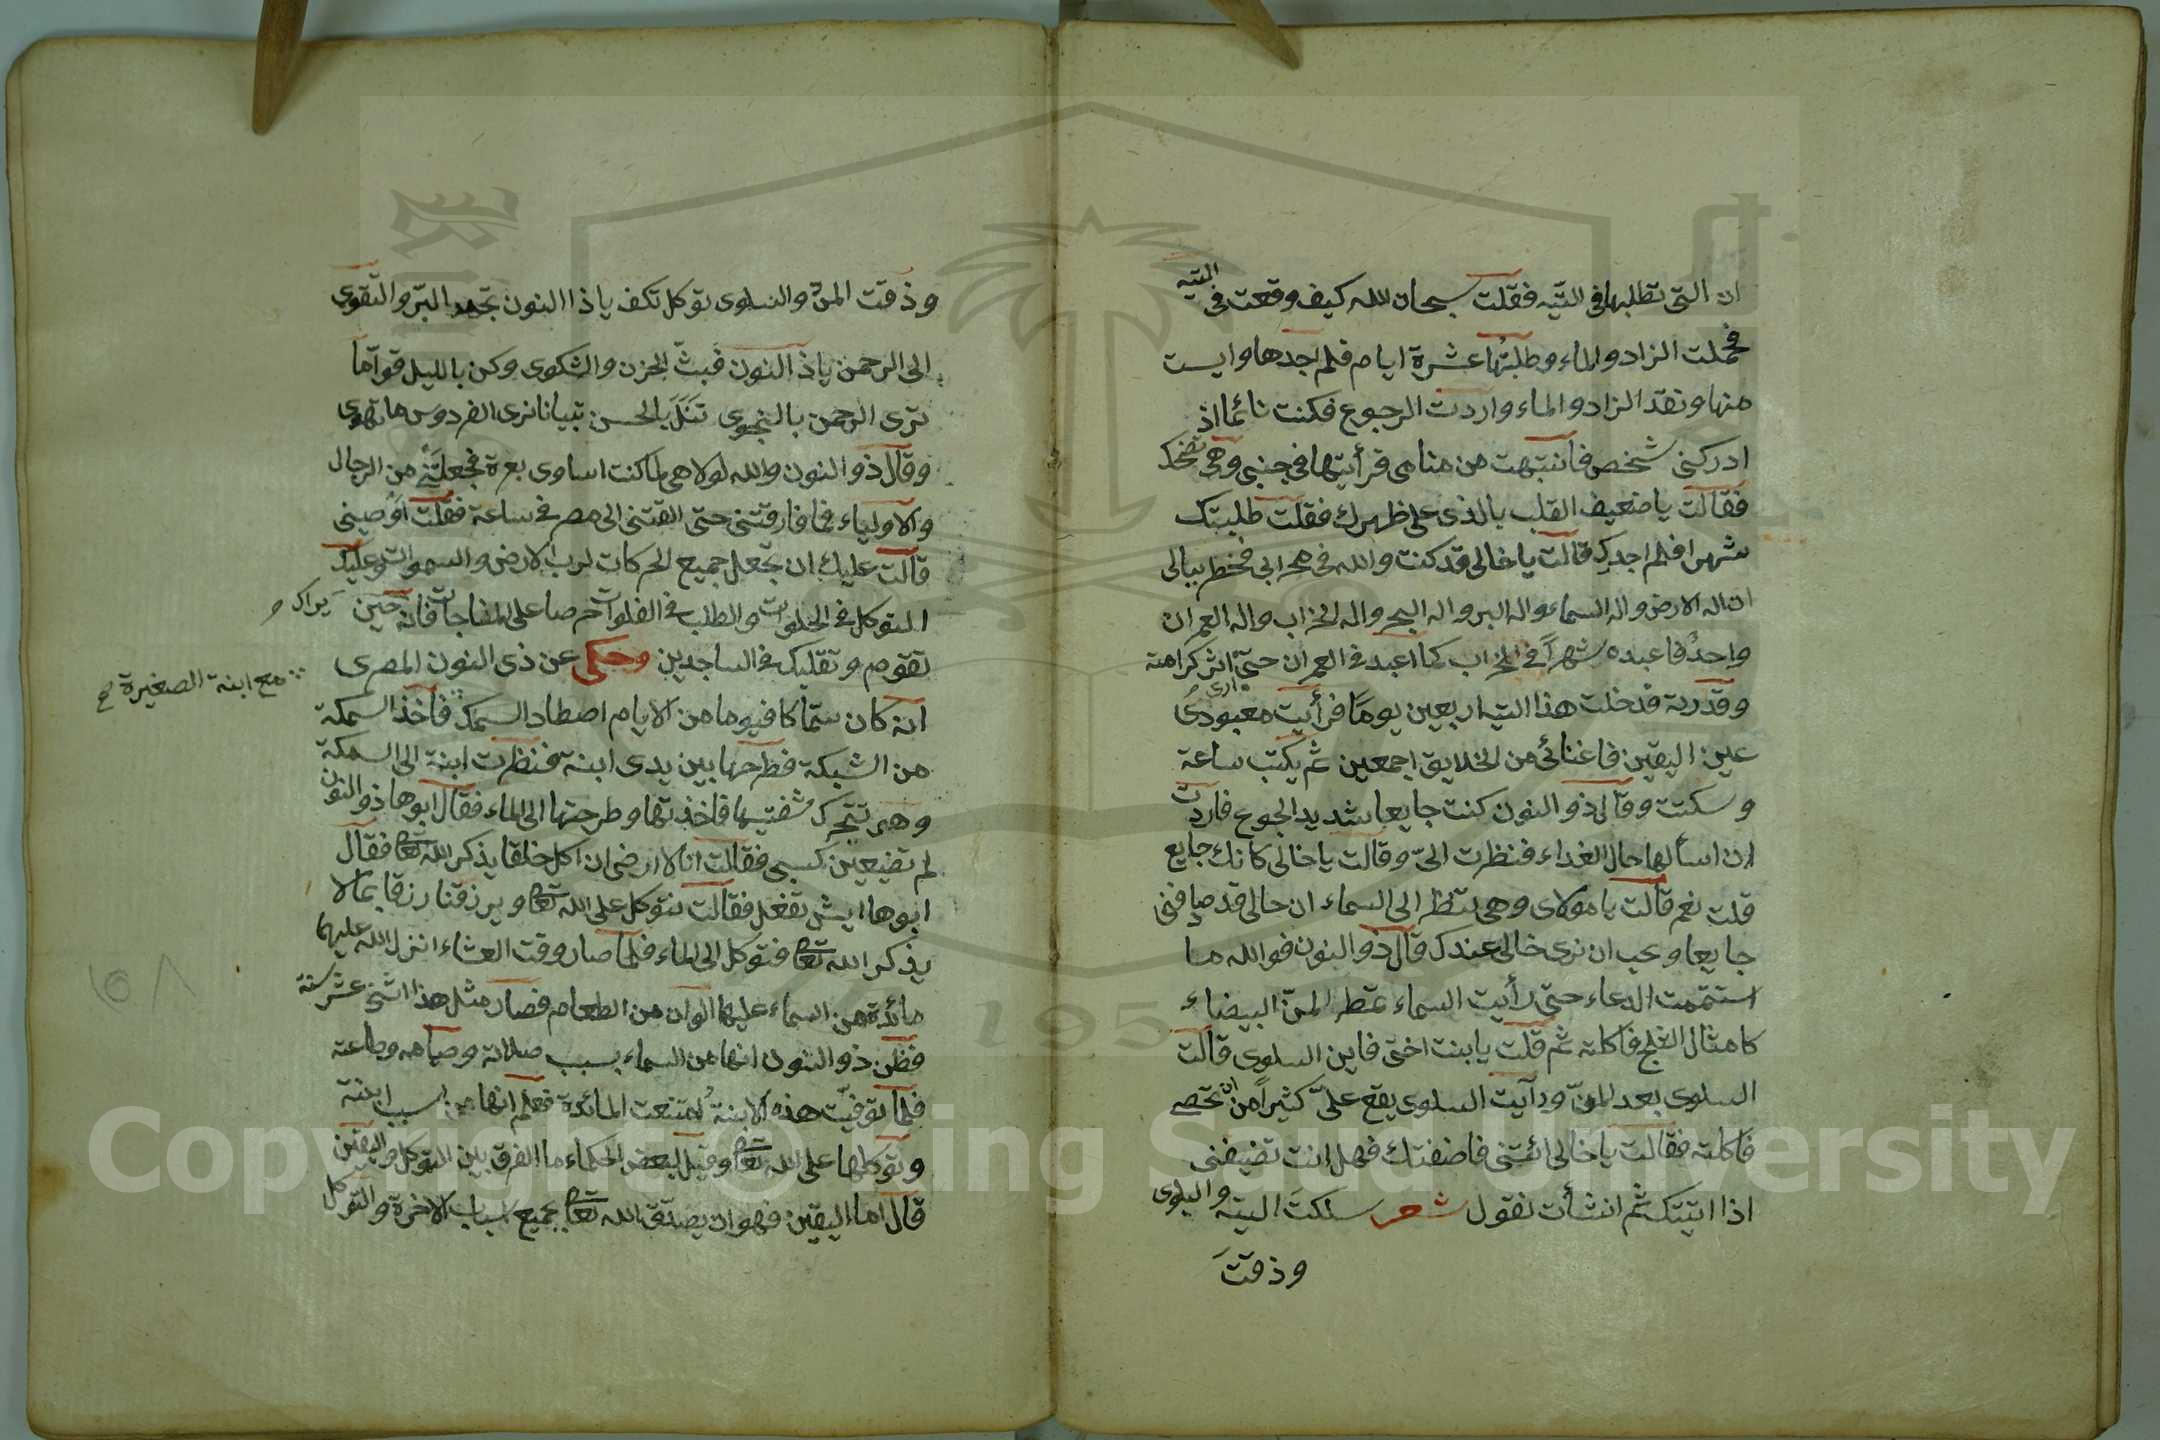 ان التى تطلبها فى التيه فقلت سبحان الله كيف وقعت فى التيه
فحملت الزاد والماء وطلبتها عشرة ايام فلم اجدها وايست
منها ونقد الزاد والماء واردت الرجوع فكنت نائما اذ
ادركنى شخص فانتبهت من منامى فرأيتها فى جنبى وهى تضحك
فقالت يا ضعيف القلب بالذى على ظهرك فقلت طلبتك
شهرا فلم اجدك قالت يا خالى قد كنت والله فى محرابى فخطر ببالى
ان اله الارض واله السماء واله البر واله البحر واله الخراب واله العمران
واحد فاعبده شهراً فى الخراب كما اعبد فى العمران حتى ارى اثر كرامته
وقدرته فدخلت هذا التيه اربعين يوما فرأيت معبودى
عين اليقين فاغنائى من الخلايق اجمعين ثم بكت ساعة
وسكتت وقال ذو النون كنت جايعا شديد الجوع فاردت
ان اسألها حال الغداء فنظرت الىّ وقالت يا خالى كانك جايع
قلت نعم قالت يا مولاى وهى تنظر الى السماء ان خالى قد ضافنى
جايعا ويحب ان نرى خالى عندك قال ذو النون فوالله ما
استتمت الدعاء حتى رأيت السماء تمطر المنّ البيضاء
كامثال الثلج فاكلته ثم قلت يا بنت اختى فاين السلوى قالت
السلوى بعد المنّ ورأيت السلوى يقع علىّ كثيراً من ان تحصى
فاكلته فقالت يا خالى ائتنى فاضفتك فهل انت تضيفنى
اذا اتيتك ثم انشأت تقول شعر سلكت التيه والبلوى
وذقتَ
وذقت المنّ والسلوى توكل تكف يا ذا النون تجد البرّ والتقوى
الى الرحمن يا ذا النون فبثّ الحزن والشكوى وكن بالليل قواما
ترى الرحمن بالنجوى تنل بالحسن تبيانا نرى الفردوس ما تهوى
وقال ذو النون والله لولا هى لما كنت اساوى بعرة فجعلتنى من الرجال
والاولياء فما فارقتنى حتى القتنى الى مصر فى ساعة فقلت اوصينى
قالت عليك ان تجعل جميع الحركات لرب الارض والسموات وعليك
التوكل فى الخلوات والطلب فى الفلوات حرصا على المفاجات فانه يراك حين
تقوم وتقلبك فى الساجدين وحكى عن ذى النون المصرى
انه كان سمّاكا فيوما من الايام اصطاد السمك مع ابنة الصغيرة صح فاخذ السمكة
من الشبكة فطرحها بين يدى ابنة فنظرت ابنة الى السمكة
وهى تتحرك شفتيها فاخذتها وطرحتها الى الماء فقال ابوها ذو النون
لم تضيعين كسبى فقالت انا لا ارضى ان اكل خلقا يذكر الله تعا فقال
ابوها ايش تفعل فقالت نتوكل على الله تعا ويرزقنا رزقا بما لا
يذكر الله تعا فتوكل الى الماء فلما صار وقت العشاء انزل الله عليهما
مائدة من السماء عليها الوان من الطعام فصار مثل هذا اثنى عشر سنة
فظن ذو النون انها من السماء بسبب صلاته وصيامه وطاعته
فلما توفيت هذه الابنة امتنعت المائدة فعلم انها من سبب ابنته
وتوكلها على الله تعا وقيل لبعض الحكماء ما الفرق بين التوكل واليقين
قال اما اليقين فهو ان يصدّق الله تعا بجميع اسباب الاخرة والتوكل